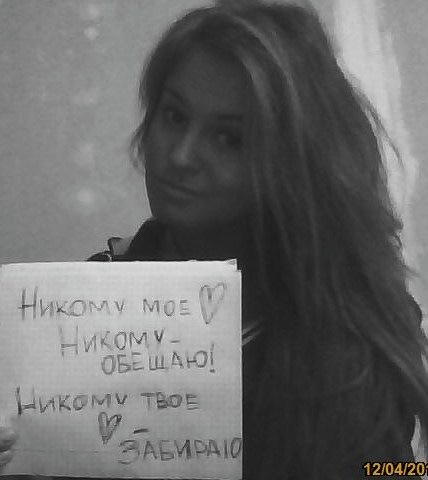 НИКОМУ МОЕ ♡
НИКОМУ-
ОБЕЩАЮ!
НИКОМУ ТВОЕ
♡ -
ЗАБИРАЮ
12/04/20